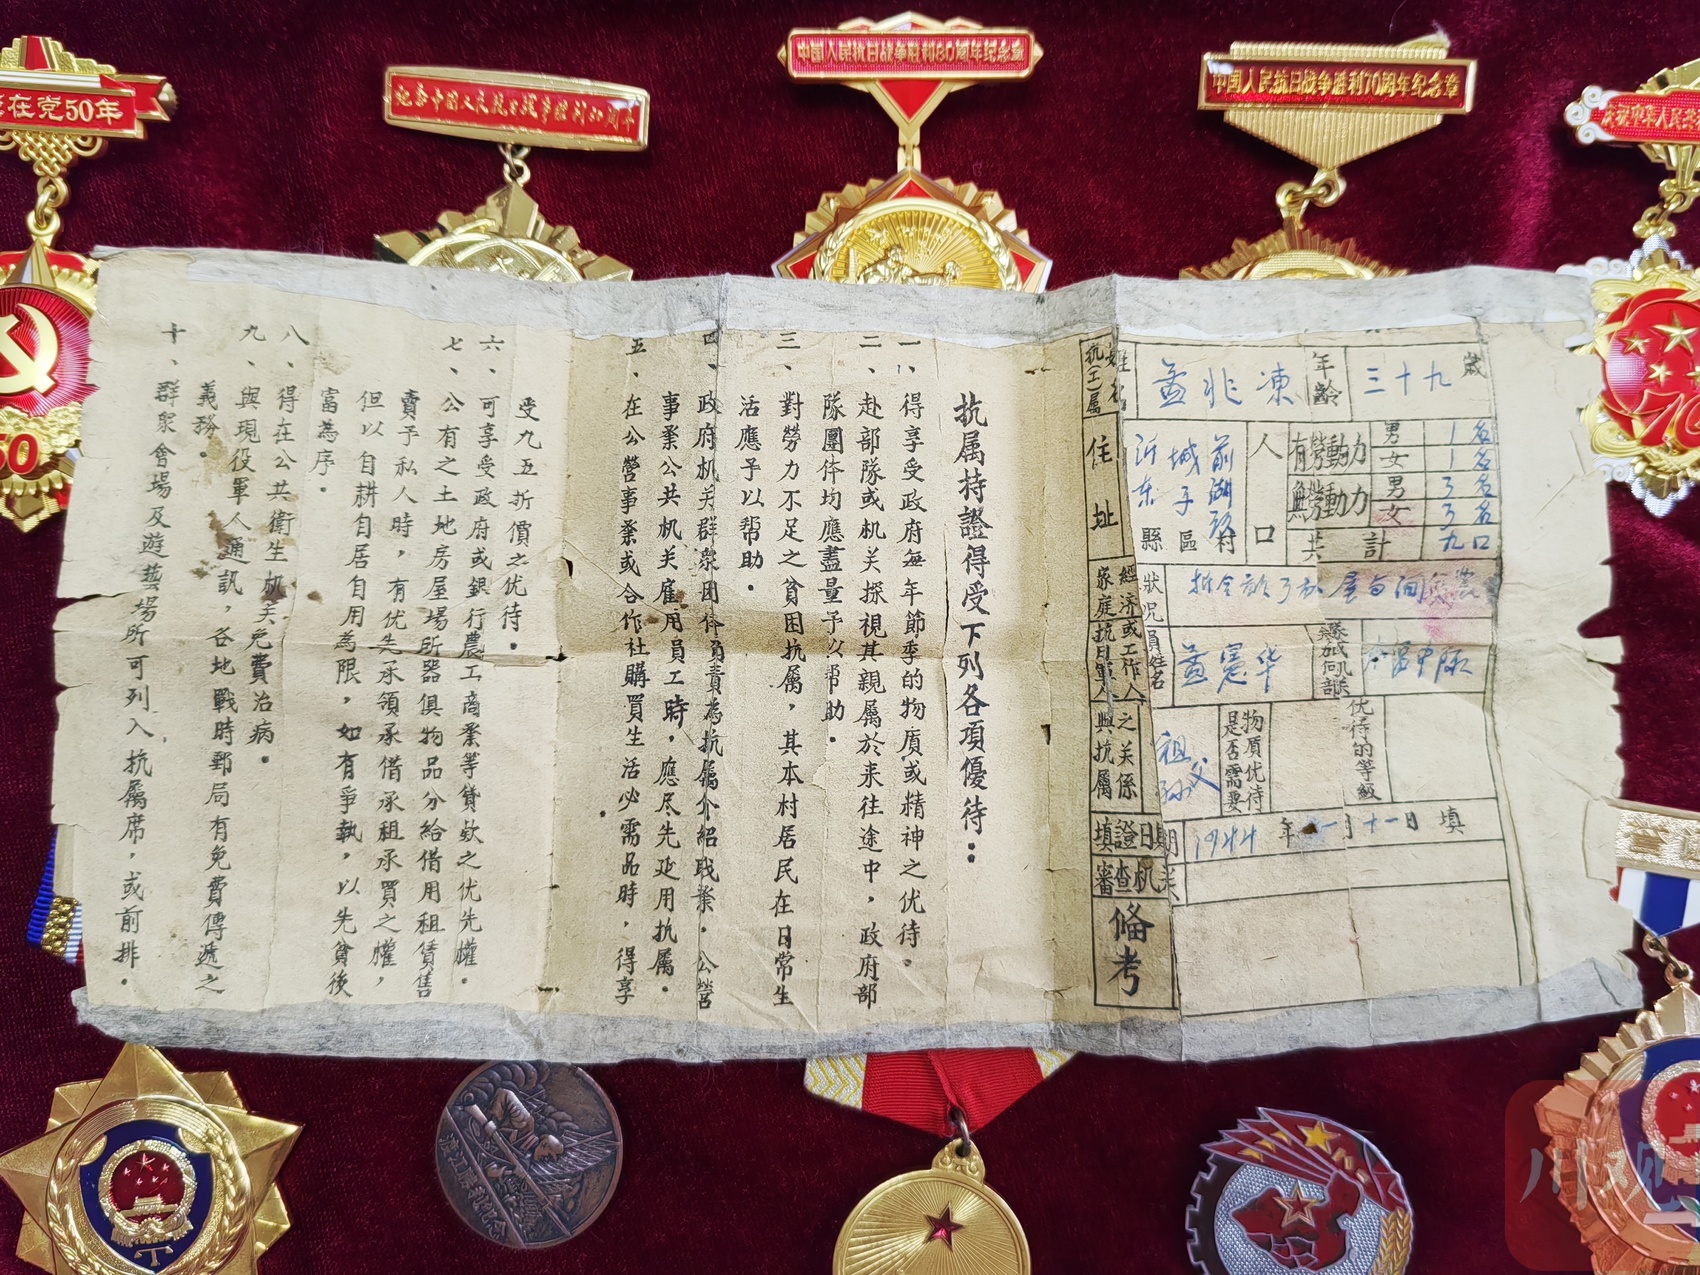 在党50年
纪念中国人民抗日战争胜利60周年
中国人民抗日战争胜利80周年纪念章
中国人民抗日战争胜利70周年纪念章
50
70
姓名
年齡
三十九
歲
抗(工)属
住址
沂东縣
城子區
前湖 村
人口
有勞動力
男
1名
女
1名
無勞動力
男
3名
女
3名
共計
九口
家庭經济
狀况
抗日軍人或工作人員姓名
孟憲华
與抗属之关係
祖父
孙
物质优待是否需要
优待的等級
填證日期
1944年 月十一日填
審查机关
俻考
抗属持證得受下列各項優待：
一、得享受政府每年節季的物质或精神之优待。
二、赴部隊或机关探視其親属於来往途中，政府部
隊團体均應盡量予以帮助。
三、對勞力不足之貧困抗属，其本村居民在日常生
活應予以帮助。
四、政府机关群衆团体負責為抗属介紹職業。公營
事業公共机关雇用員工時，應尽先延用抗属。
五、在公營事業或合作社購買生活必需品時，得享
受九五折價之优待。
六、可享受政府或銀行農工商業等貸欵之优先權。
七、公有之土地房屋場所器俱物品分給借用租賃售
賣予私人時，有优先承領承借承租承買之權，
但以自耕自居自用為限，如有爭執，以先貧後
富為序。
八、得在公共衛生机关免費治病。
九、與現役軍人通訊，各地戰時郵局有免費傳遞之
義務。
十、群衆會場及遊藝場所可列入抗属席，或前排。